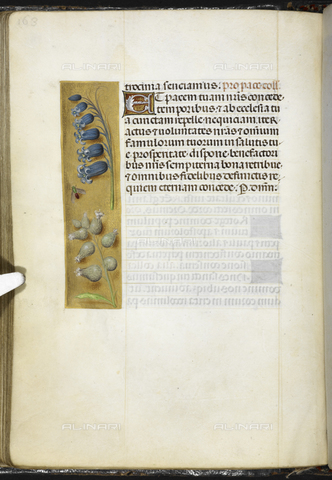 163
trocinia senciamus: pro pace coll.
Et pacem tuam nr̄is concede
temporibus: & ab ecclesia tu
a cunctam repelle nequiciam. iter,
actus, & volūtates nr̄as: & om̄ium
famulorum tuorum in salutis tu
e prosperitate dispone: benefactori
bus nr̄is sempiterna bona retribue:
& omnibus fidelibus defunctis re
quiem eternam concede. P. domin̄.
ALINARI
ALINARI
ALINARI
ALINARI